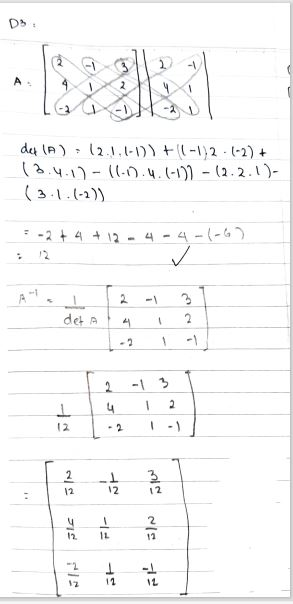 D3 :
A = [ 2 -1 3 | 2 -1 |
4 1 2 | 4 1 |
-2 1 -1 ] | -2 1 |
det (A) = (2.1.(-1)) + ((-1)2.(-2) +
(3.4.1) - ((-1).4.(-1)) - (2.2.1) -
(3.1.(-2))
= -2 + 4 + 12 - 4 - 4 - (-6)
= 12 ✓
A⁻¹ = 1/det A [ 2 -1 3
4 1 2
-2 1 -1 ]
1/12 [ 2 -1 3
4 1 2
-2 1 -1 ]
= [ 2/12 -1/12 3/12
4/12 1/12 2/12
-2/12 1/12 -1/12 ]